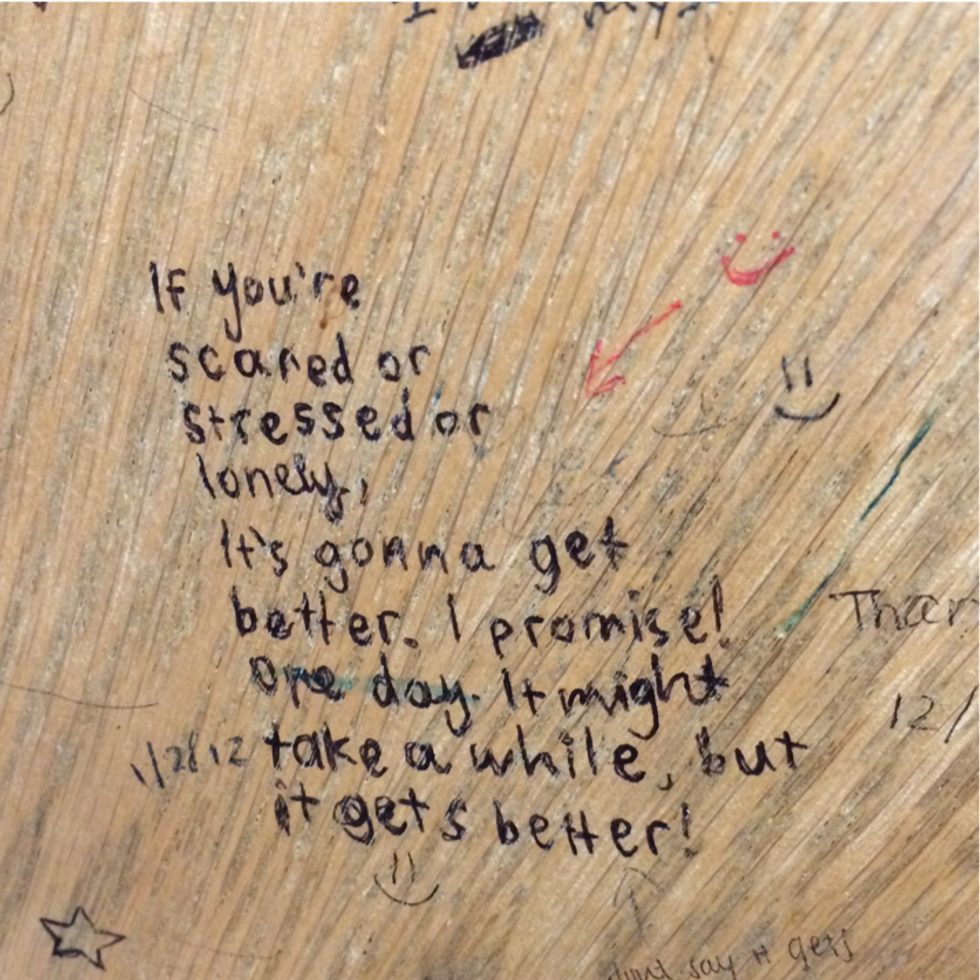 If you're
scared or
stressed or
lonely,
It's gonna get
better. I promise!
One day. It might
1/2/12 take a while, but
it gets better!
12/
say it gets